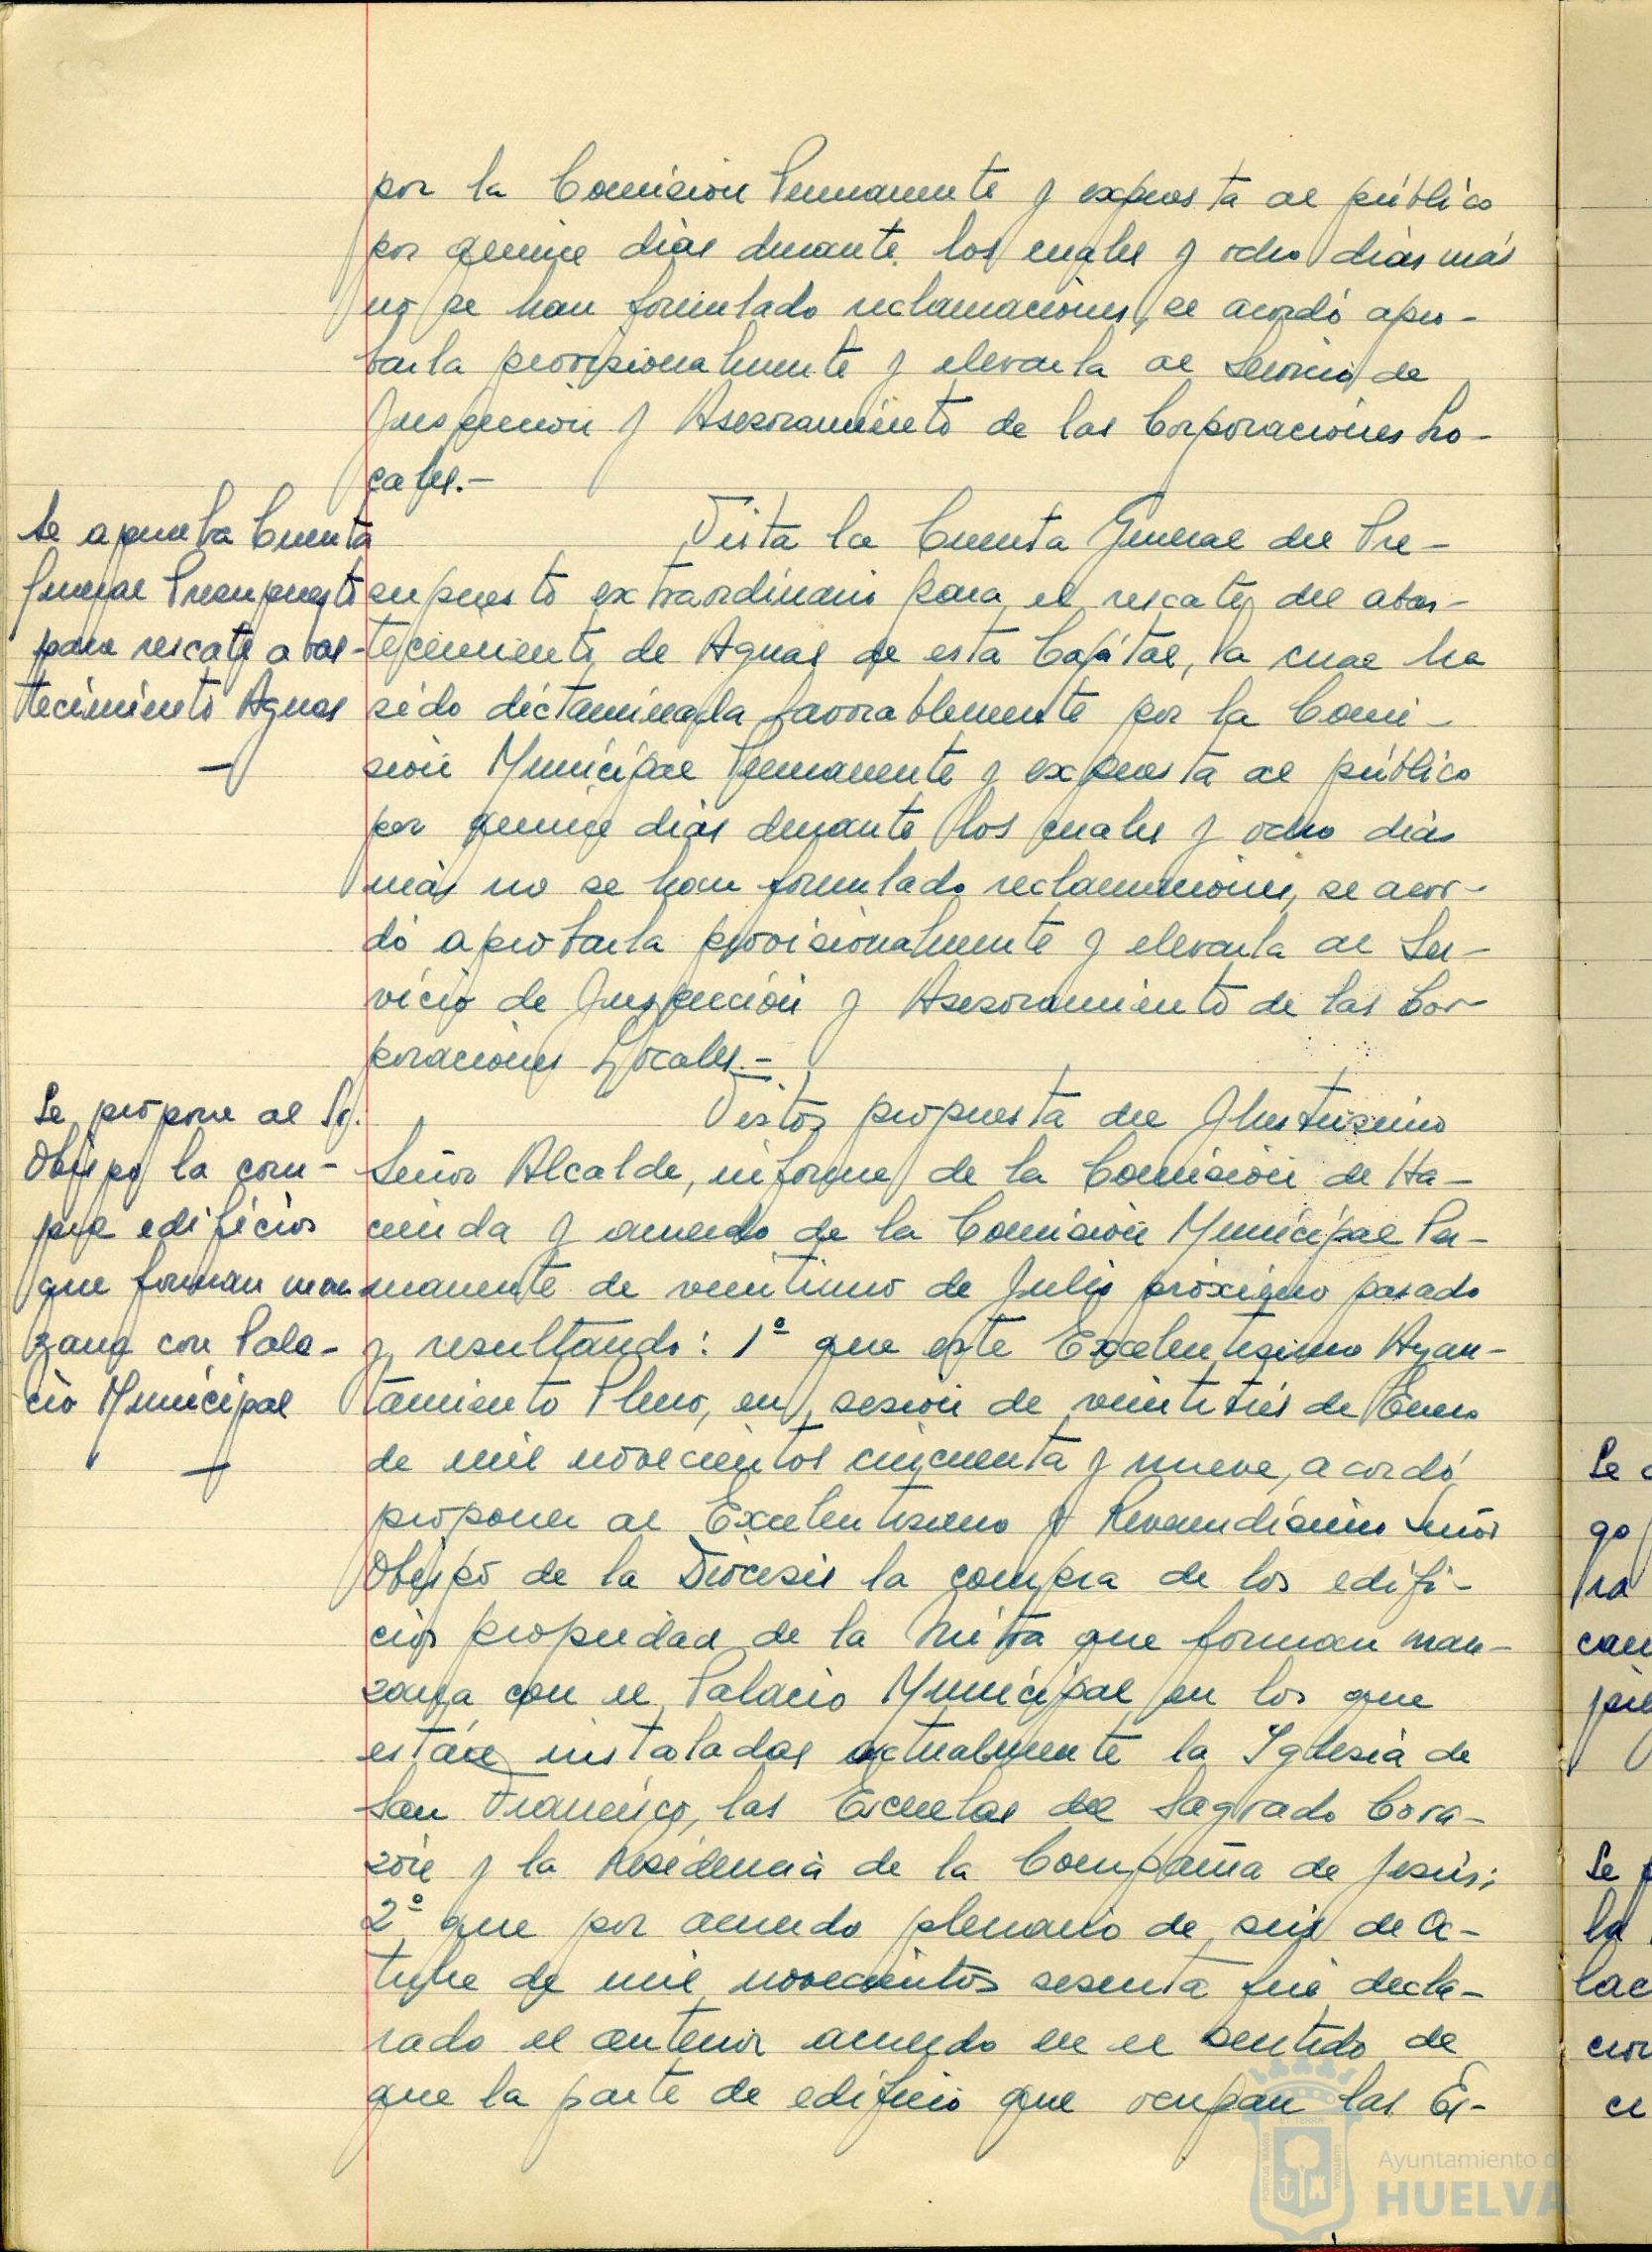 por la Comisión Permanente y expuesta al público
por quince días durante los cuales y ocho días más
no se han formulado reclamaciones, se acordó apro-
barla provisionalmente y elevarla al Servicio de
Inspección y Asesoramiento de las Corporaciones Lo-
cales.-
Se aprueba Cuenta
General Presupuesto
para rescate abas-
tecimiento Aguas
Vista la Cuenta General del Pre-
supuesto extraordinario para el rescate del abas-
tecimiento de Aguas de esta Capital, la cual ha
sido dictaminada favorablemente por la Comi-
sión Municipal Permanente y expuesta al público
por quince días durante los cuales y ocho días
más no se han formulado reclamaciones, se acor-
dó aprobarla provisionalmente y elevarla al Ser-
vicio de Inspección y Asesoramiento de las Cor-
poraciones Locales.=
Se propone al Sr.
Obispo la com-
pra edificios
que forman man
zana con Pala-
cio Municipal
Vistos propuesta del Ilustrísimo
Señor Alcalde, informe de la Comisión de Ha-
cienda y acuerdo de la Comisión Municipal Per-
manente de veintiuno de Julio próximo pasado
y resultando: 1º que este Excelentísimo Ayun-
tamiento Pleno, en sesión de veintitrés de Enero
de mil novecientos cincuenta y nueve, acordó
proponer al Excelentísimo y Reverendísimo Señor
Obispo de la Diócesis la compra de los edifi-
cios propiedad de la Mitra que forman man-
zana con el Palacio Municipal en los que
están instaladas actualmente la Iglesia de
San Francisco, las Escuelas del Sagrado Cora-
zón y la Residencia de la Compañía de Jesús;
2º que por acuerdo plenario de seis de Oc-
tubre de mil novecientos sesenta fué decla-
rado el anterior acuerdo en el sentido de
que la parte de edificio que ocupan las Es-
Se
go
ra
cam
Se
la
lac
cion
Ayuntamiento de
HUELVA